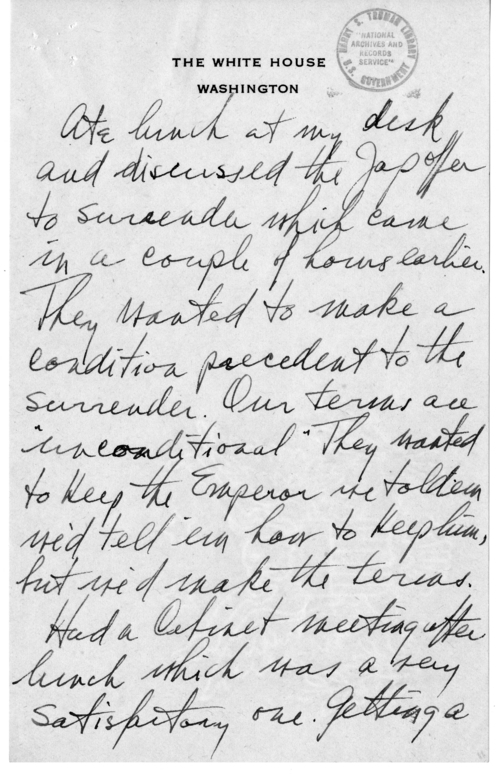 THE WHITE HOUSE
WASHINGTON
HARRY S. TRUMAN LIBRARY
"NATIONAL
ARCHIVES AND
RECORDS
SERVICE"
U.S. GOVERNMENT
Ate lunch at my desk
and discussed the Jap offer
to surrender which came
in a couple of hours earlier.
They wanted to make a
condition precedent to the
surrender. Our terms are
"unconditional" They wanted
to keep the Emperor we told em
we'd tell 'em how to keep him,
but we'd make the terms.
Had a Cabinet meeting after
lunch which was a very
satisfactory one. Getting a